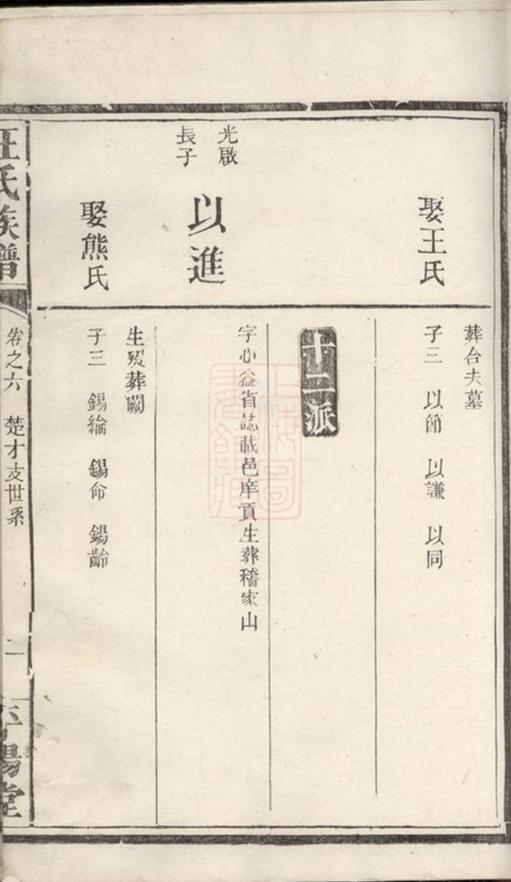 娶王氏
葬台夫墓
子三 以節 以謙 以同
十二派
光啟
長子
以進
字心益省誌載邑庠貢生葬稽家山
娶熊氏
生殁葬闕
子三 錫綸 錫命 錫齡
汪氏族譜
卷之六 楚才支世系
二
平陽堂